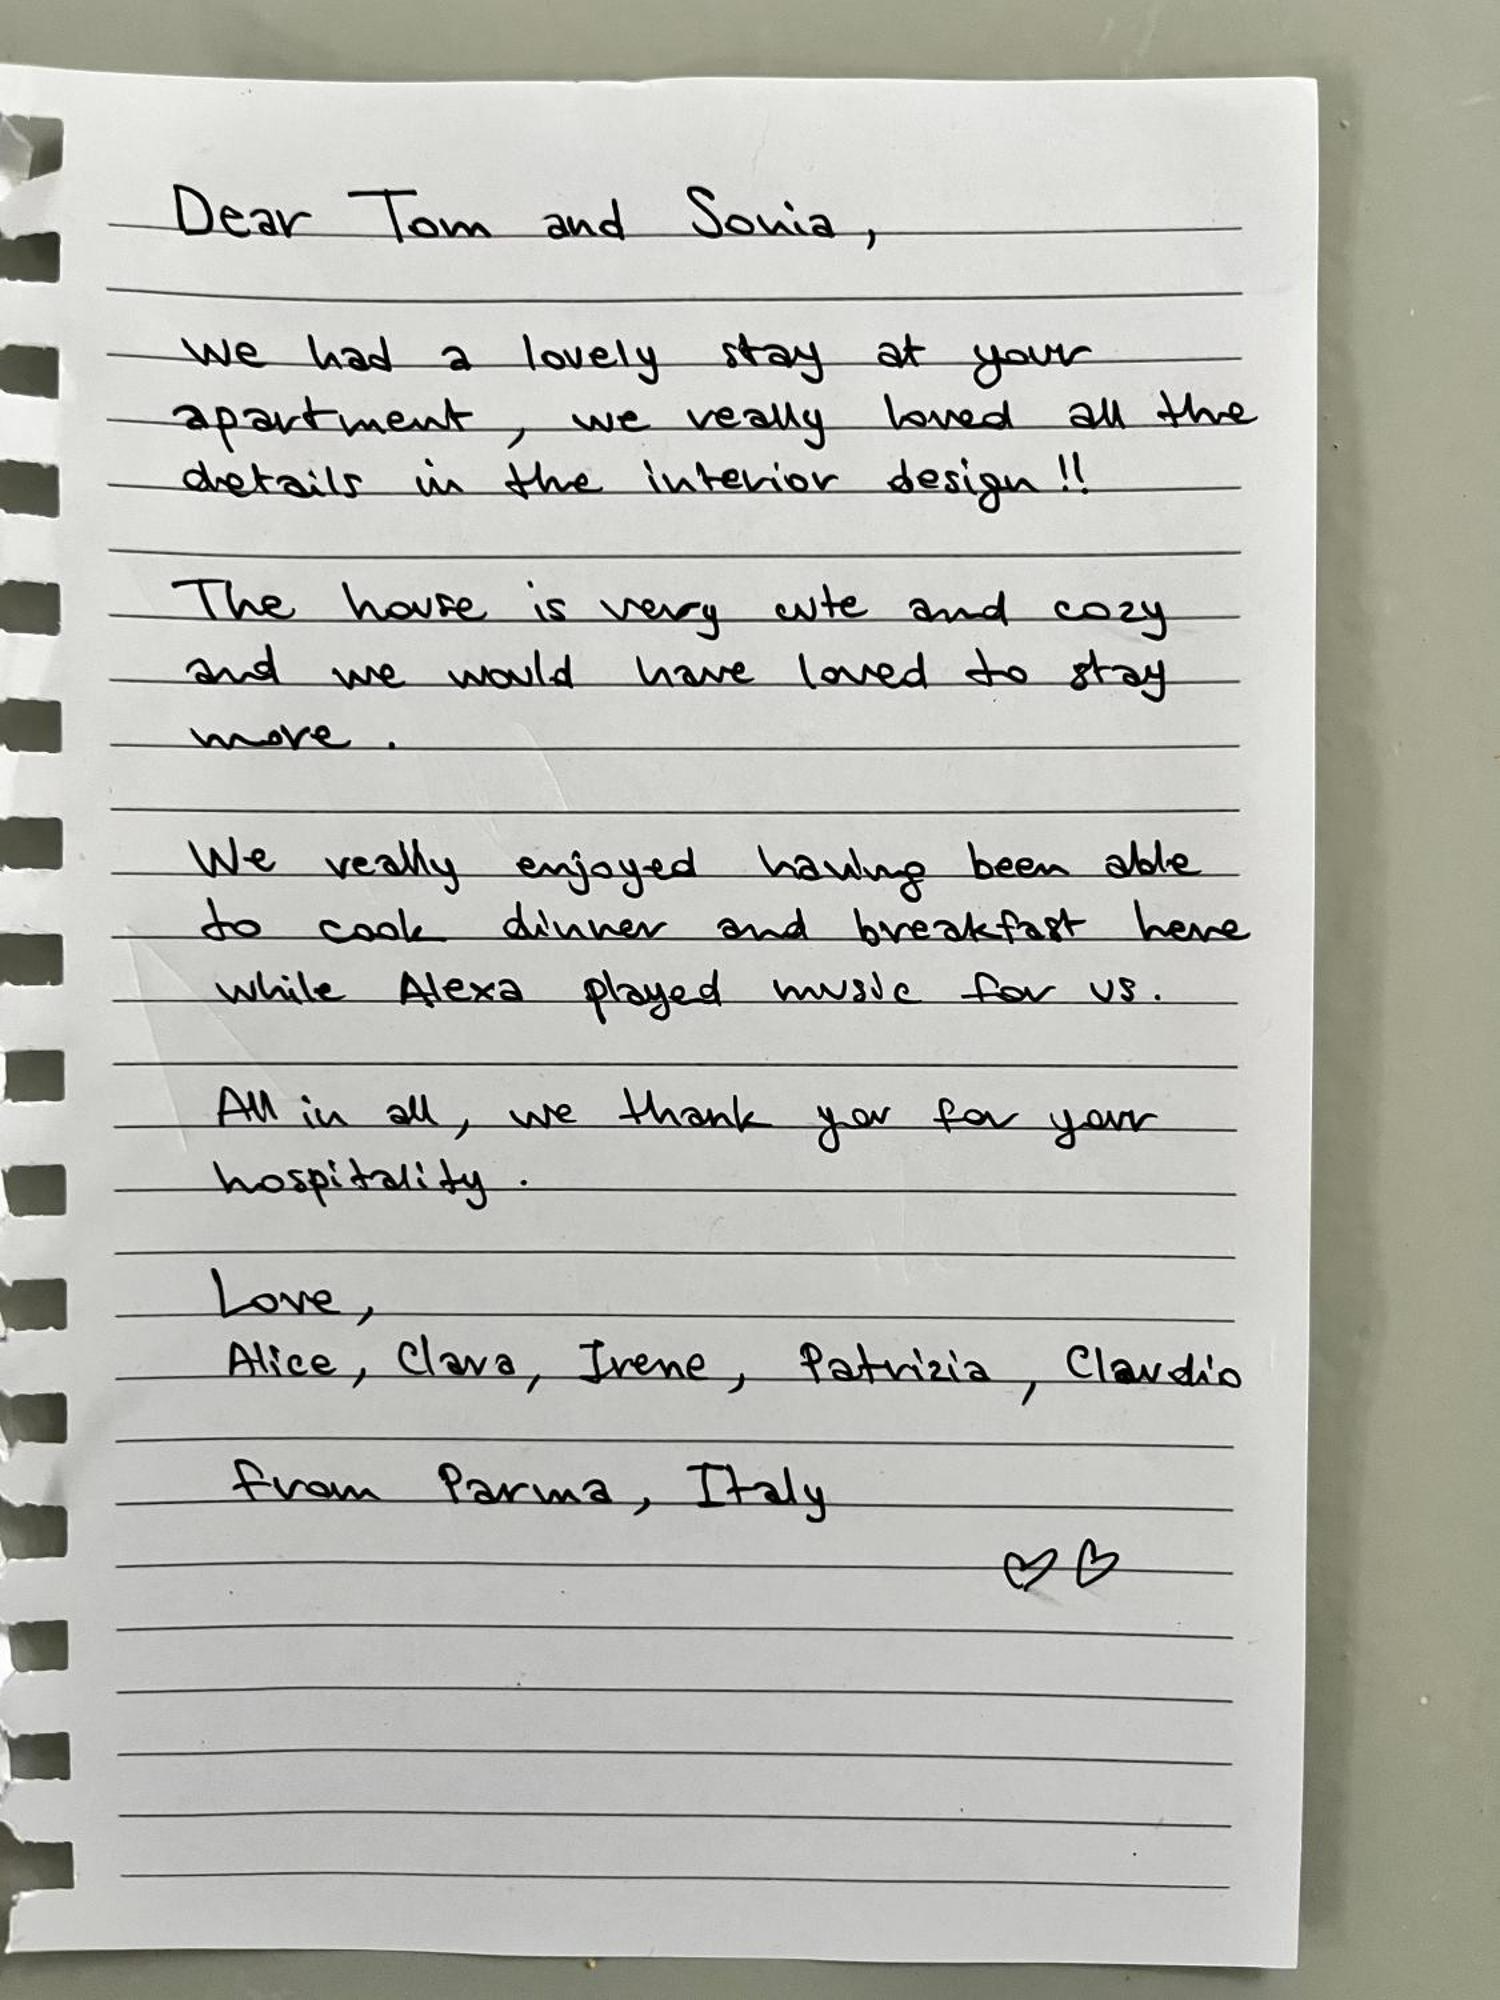 Dear Tom and Sonia,
We had a lovely stay at your
apartment, we really loved all the
details in the interior design!!
The house is very cute and cozy
and we would have loved to stay
more.
We really enjoyed having been able
to cook dinner and breakfast here
while Alexa played music for us.
All in all, we thank you for your
hospitality.
Love,
Alice, Clara, Irene, Patrizia, Claudio
from Parma, Italy